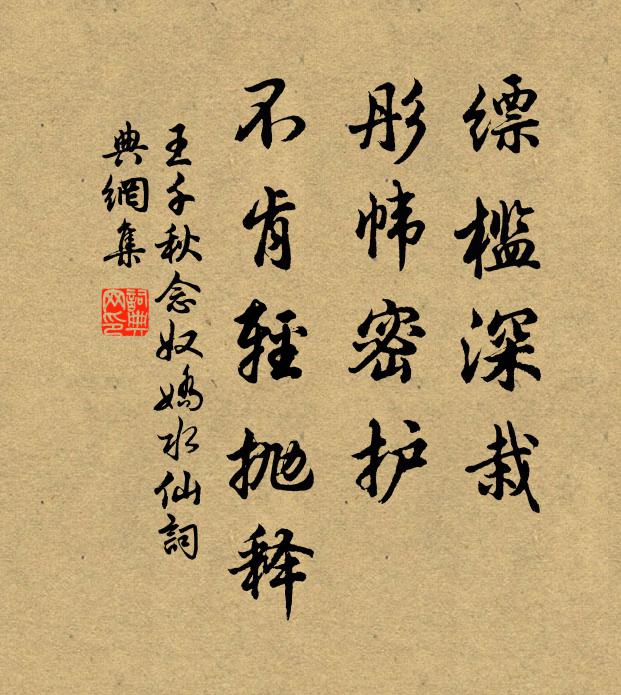 缥槛深栽
彤帏密护
不肯轻抛释
王千秋念奴娇水仙詞
典網集
詞典网印